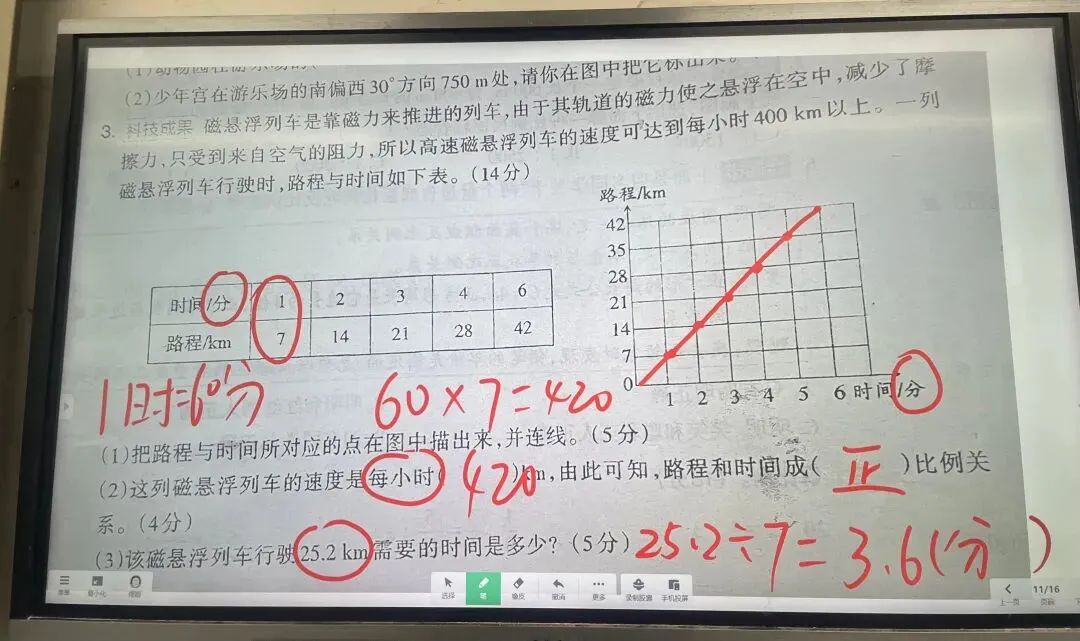 (1)动物园在游乐场的
(2)少年宫在游乐场的南偏西30°方向750 m处,请你在图中把它标出来。
3. 科技成果 磁悬浮列车是靠磁力来推进的列车,由于其轨道的磁力使之悬浮在空中,减少了摩
擦力,只受到来自空气的阻力,所以高速磁悬浮列车的速度可达到每小时400 km以上。一列
磁悬浮列车行驶时,路程与时间如下表。(14分)
路程/km
42
35
28
21
14
7
0
1 2 3 4 5 6 时间/分
时间/分 1 2 3 4 6
路程/km 7 14 21 28 42
1时=60分 60×7=420
(1)把路程与时间所对应的点在图中描出来,并连线。(5分)
(2)这列磁悬浮列车的速度是每小时(420)km,由此可知,路程和时间成(正)比例关
系。(4分)
(3)该磁悬浮列车行驶25.2 km需要的时间是多少?(5分) 25.2÷7=3.6(分)
最小化
选择 笔 橡皮 撤消 更多 录制胶囊 手机投屏
上一页 11/16